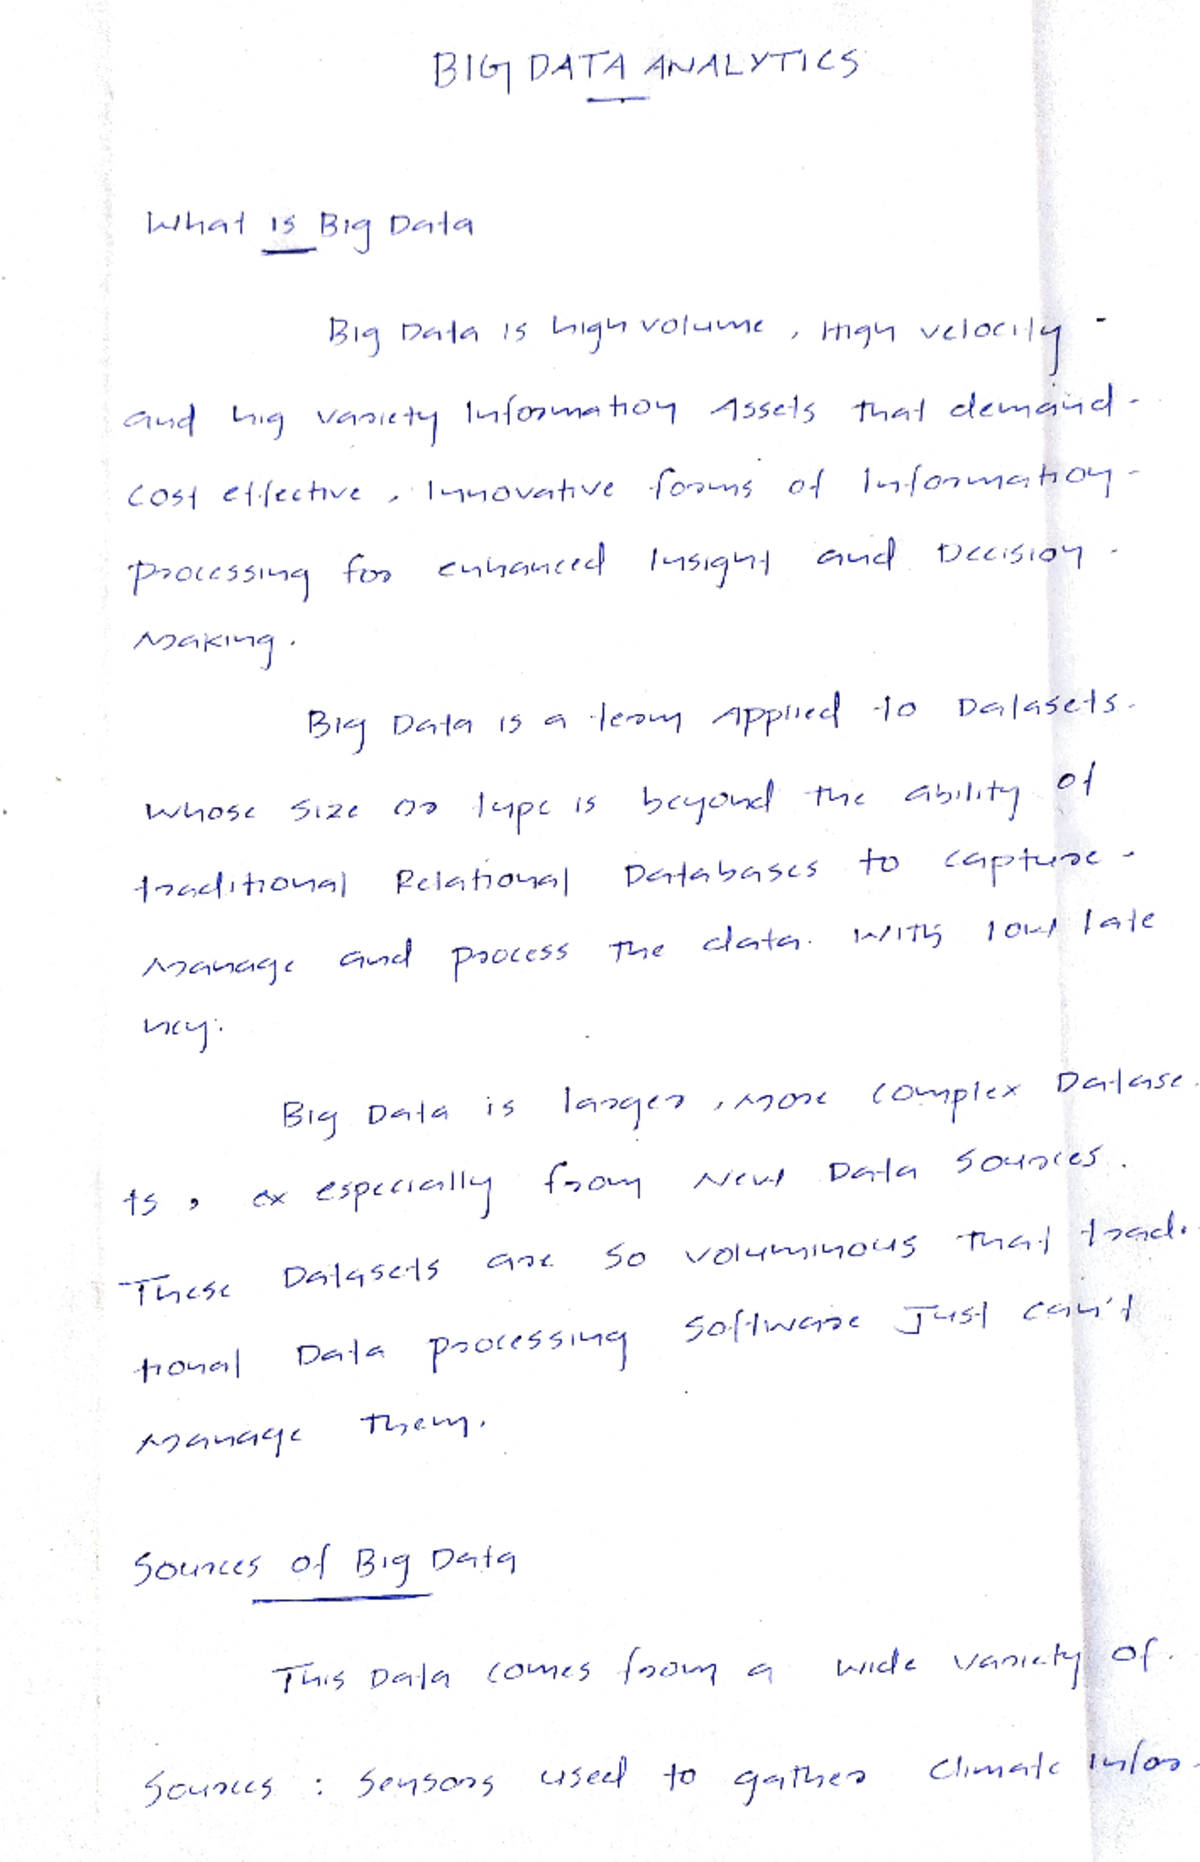 BIG DATA ANALYTICS
What is Big Data
Big Data is high volume, High velocity -
and hig variety Information Assets that demand -
cost effective, Innovative forms of Information -
processing for enhanced Insight and Decision -
Making.
Big Data is a term Applied to Datasets -
whose size or type is beyond the ability of
traditional Relational Databases to capture -
Manage and process the data. With low late
ncy.
Big Data is larger, more complex Datase -
ts, especially from New Data Sources.
These Datasets are so voluminous that tradi-
tional Data processing software Just can't
manage them.
Sources of Big Data
This Data comes from a wide variety of.
Sources : Sensors used to gather Climate Infor-